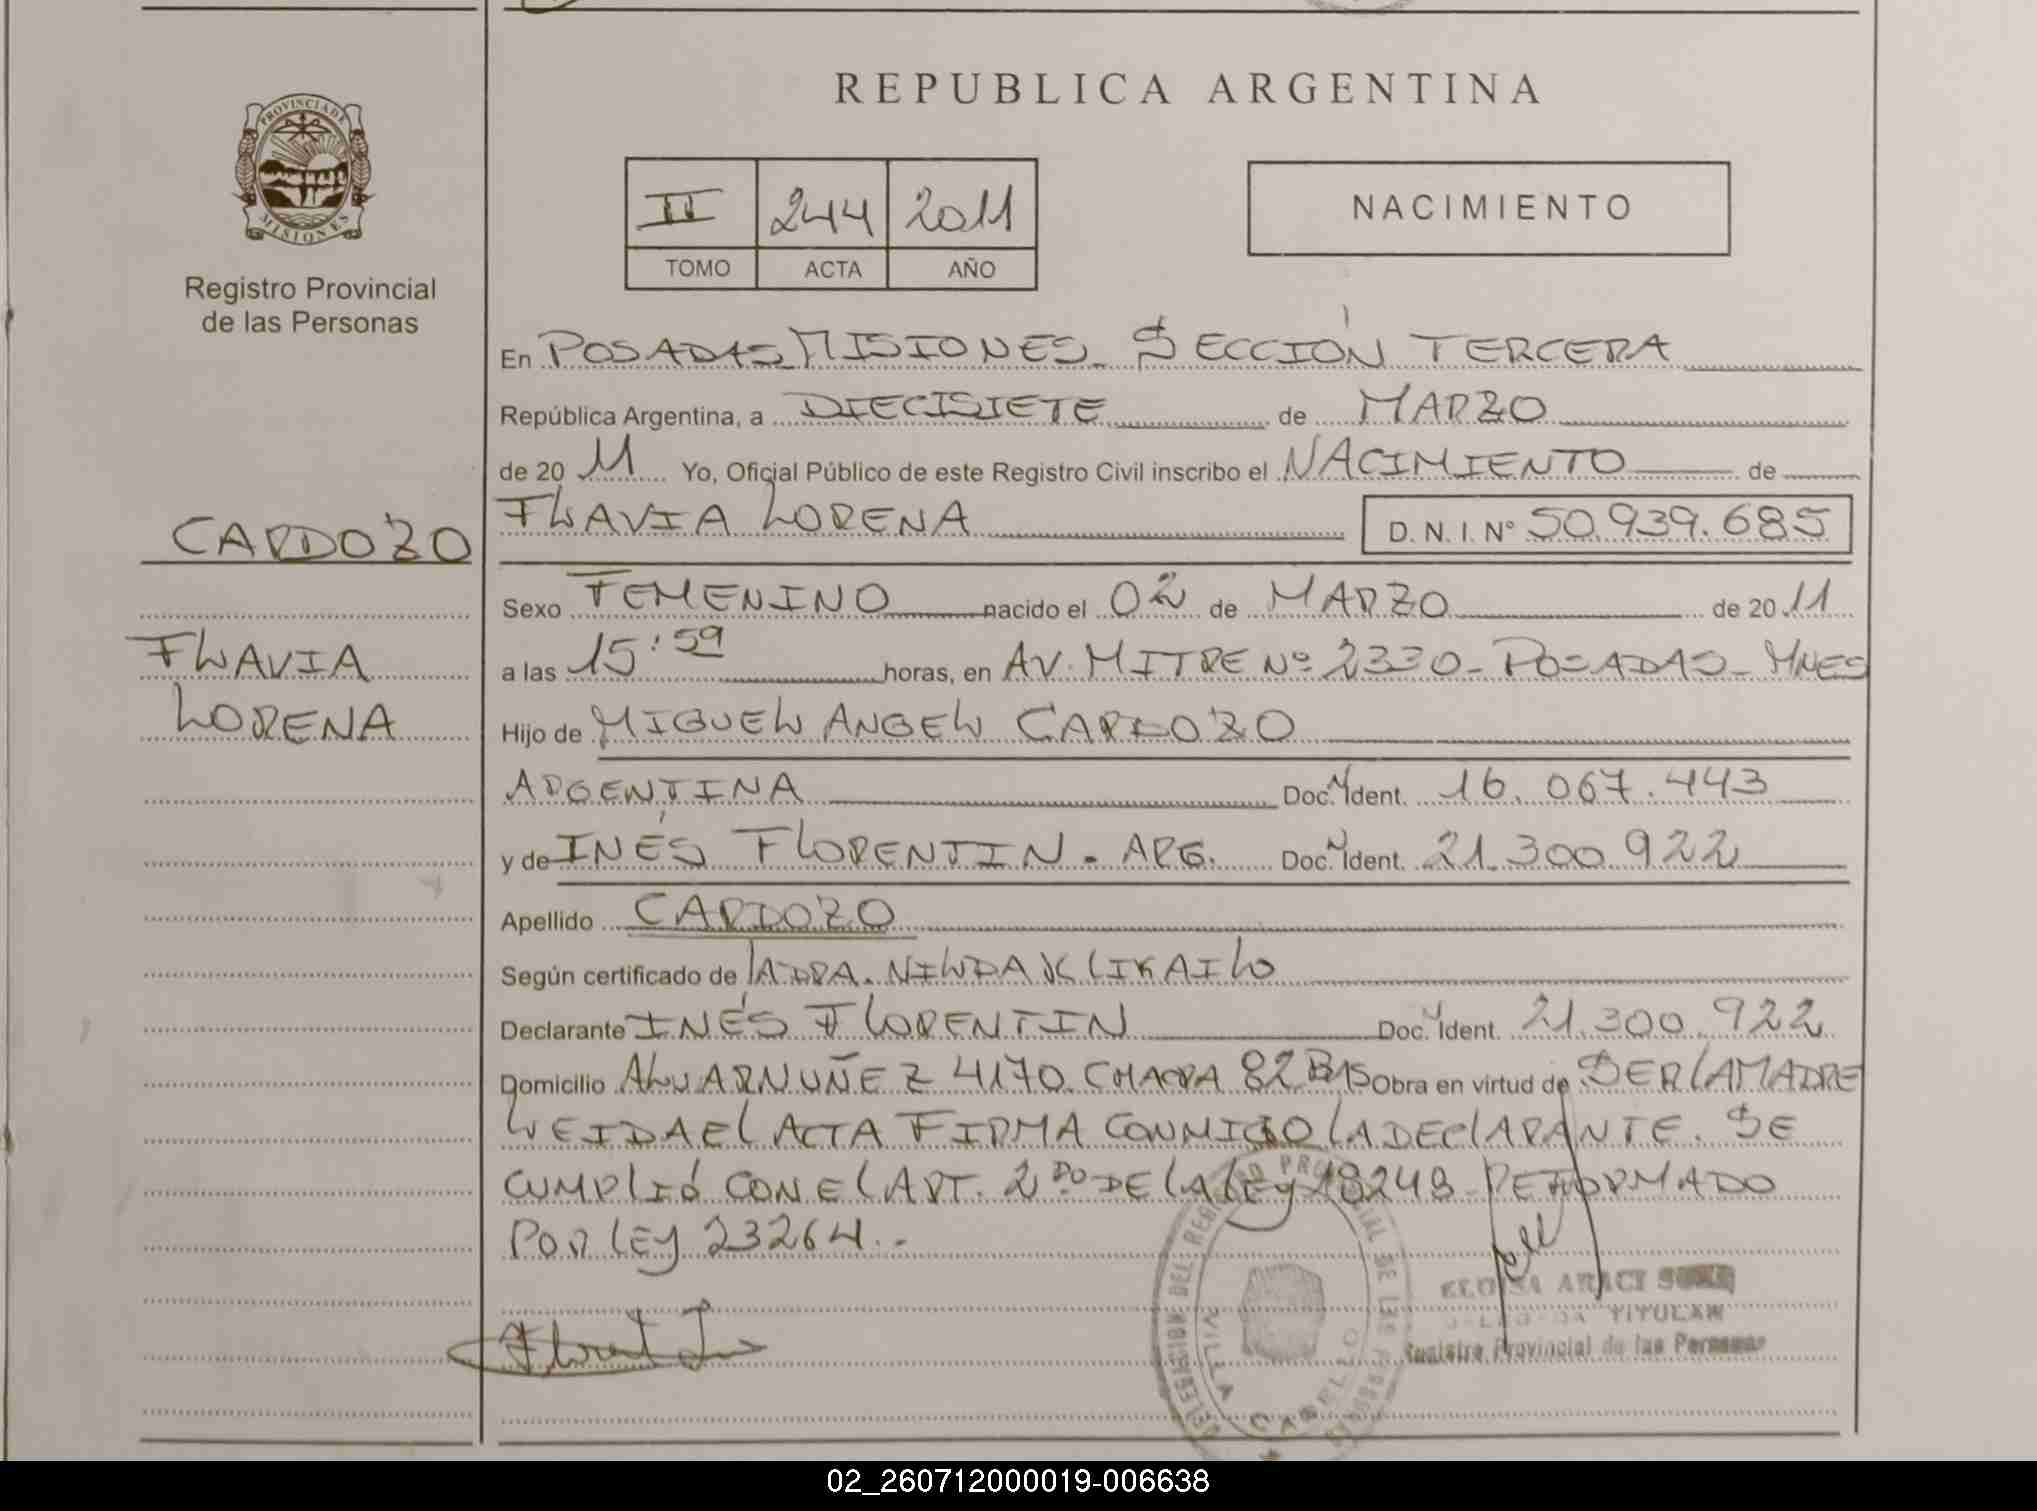 REPUBLICA ARGENTINA
PROVINCIA DE
MISIONES
Registro Provincial
de las Personas
II 244 2011
TOMO ACTA AÑO
NACIMIENTO
En POSADAS MISIONES. SECCIÓN TERCERA
República Argentina, a DIECISIETE de MARZO
de 20 11 Yo, Oficial Público de este Registro Civil inscribo el NACIMIENTO de
FLAVIA LORENA D.N.I. Nº 50.939.685
CARDOZO
FLAVIA
LORENA
Sexo FEMENINO nacido el 02 de MARZO de 20 11
a las 15:59 horas, en AV. MITRE Nº 2330 - POSADAS - MNES
Hijo de MIGUEL ANGEL CARDOZO
ARGENTINA Doc. Ident. 16.067.443
y de INÉS FLORENTIN - ARG. Doc. Ident. 21.300.922
Apellido CARDOZO
Según certificado de LA DRA. NILDA
Declarante INÉS FLORENTIN Doc. Ident. 21.300.922
Domicilio ALVAR NUÑEZ 4170. CHACRA 82 Obra en virtud de SER LA MADRE
LEIDA EL ACTA FIRMA CONMIGO LA DECLARANTE. SE
CUMPLIÓ CON EL ART. 2DO DE LA LEY 18248 REFORMADO
POR LEY 23264.-
DELEGACION DEL REGISTRO PROVINCIAL DE LAS PERSONAS
VILLA CABELLO
ARACI
TITULAR
Registro Provincial de las Personas
02_260712000019-006638